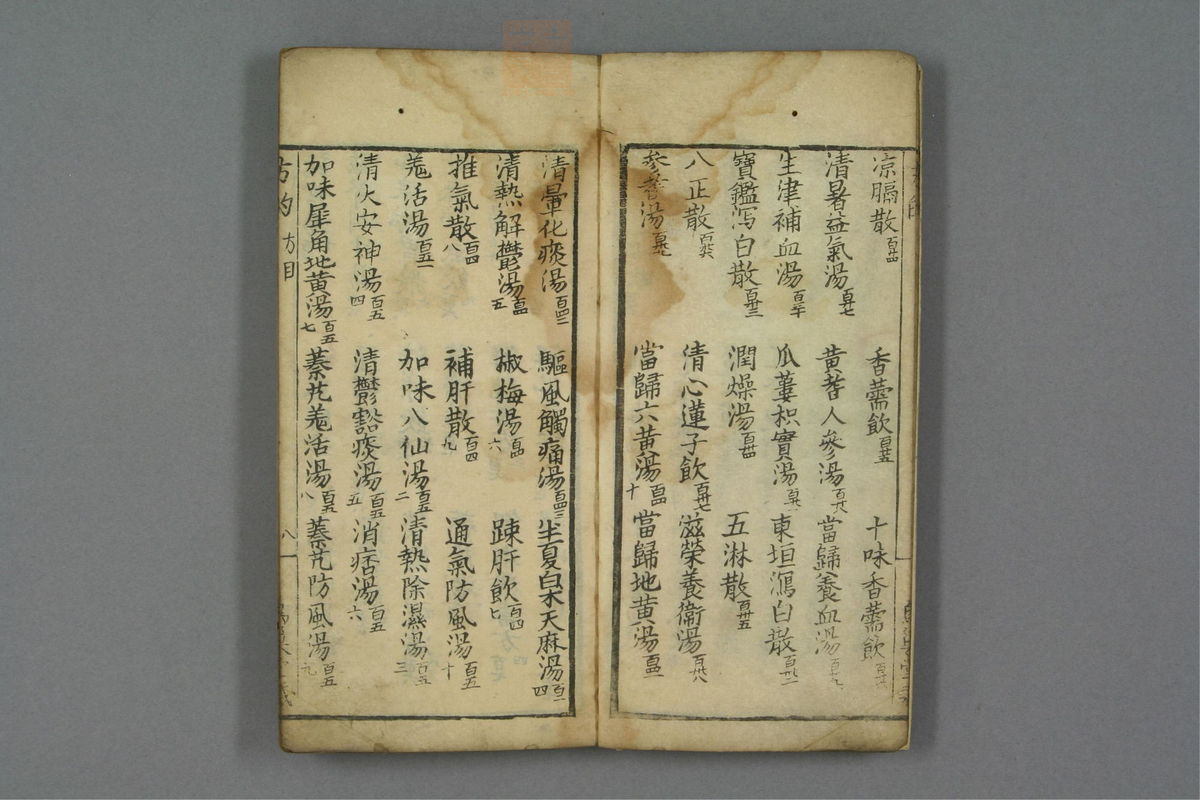 凉膈散百十四 香薷飲百十五 十味香薷飲
清暑益氣湯百十七 黃耆人參湯百十八 當歸養血湯百十九
生津補血湯百二十 瓜蔞枳實湯 東垣瀉白散
寶鑑瀉白散百廿三 潤燥湯百廿四 五淋散百廿五
八正散百廿六 清心蓮子飲百廿七 滋榮養衞湯百廿八
參耆湯 當歸六黃湯百四十 當歸地黃湯百四一
清暈化痰湯百四二 驅風觸痛湯百四三 半夏白朮天麻湯百四四
清熱解鬱湯百四五 椒梅湯百四六 踈肝飲百四七
推氣散百四八 補肝散百四九 通氣防風湯百五十
羗活湯百五一 加味八仙湯百五二 清熱除濕湯百五三
清火安神湯百五四 清鬱豁痰湯百五五 消痞湯百五六
加味犀角地黃湯百五七 蓁芃羗活湯百五八 蓁芃防風湯百五九
方目 八